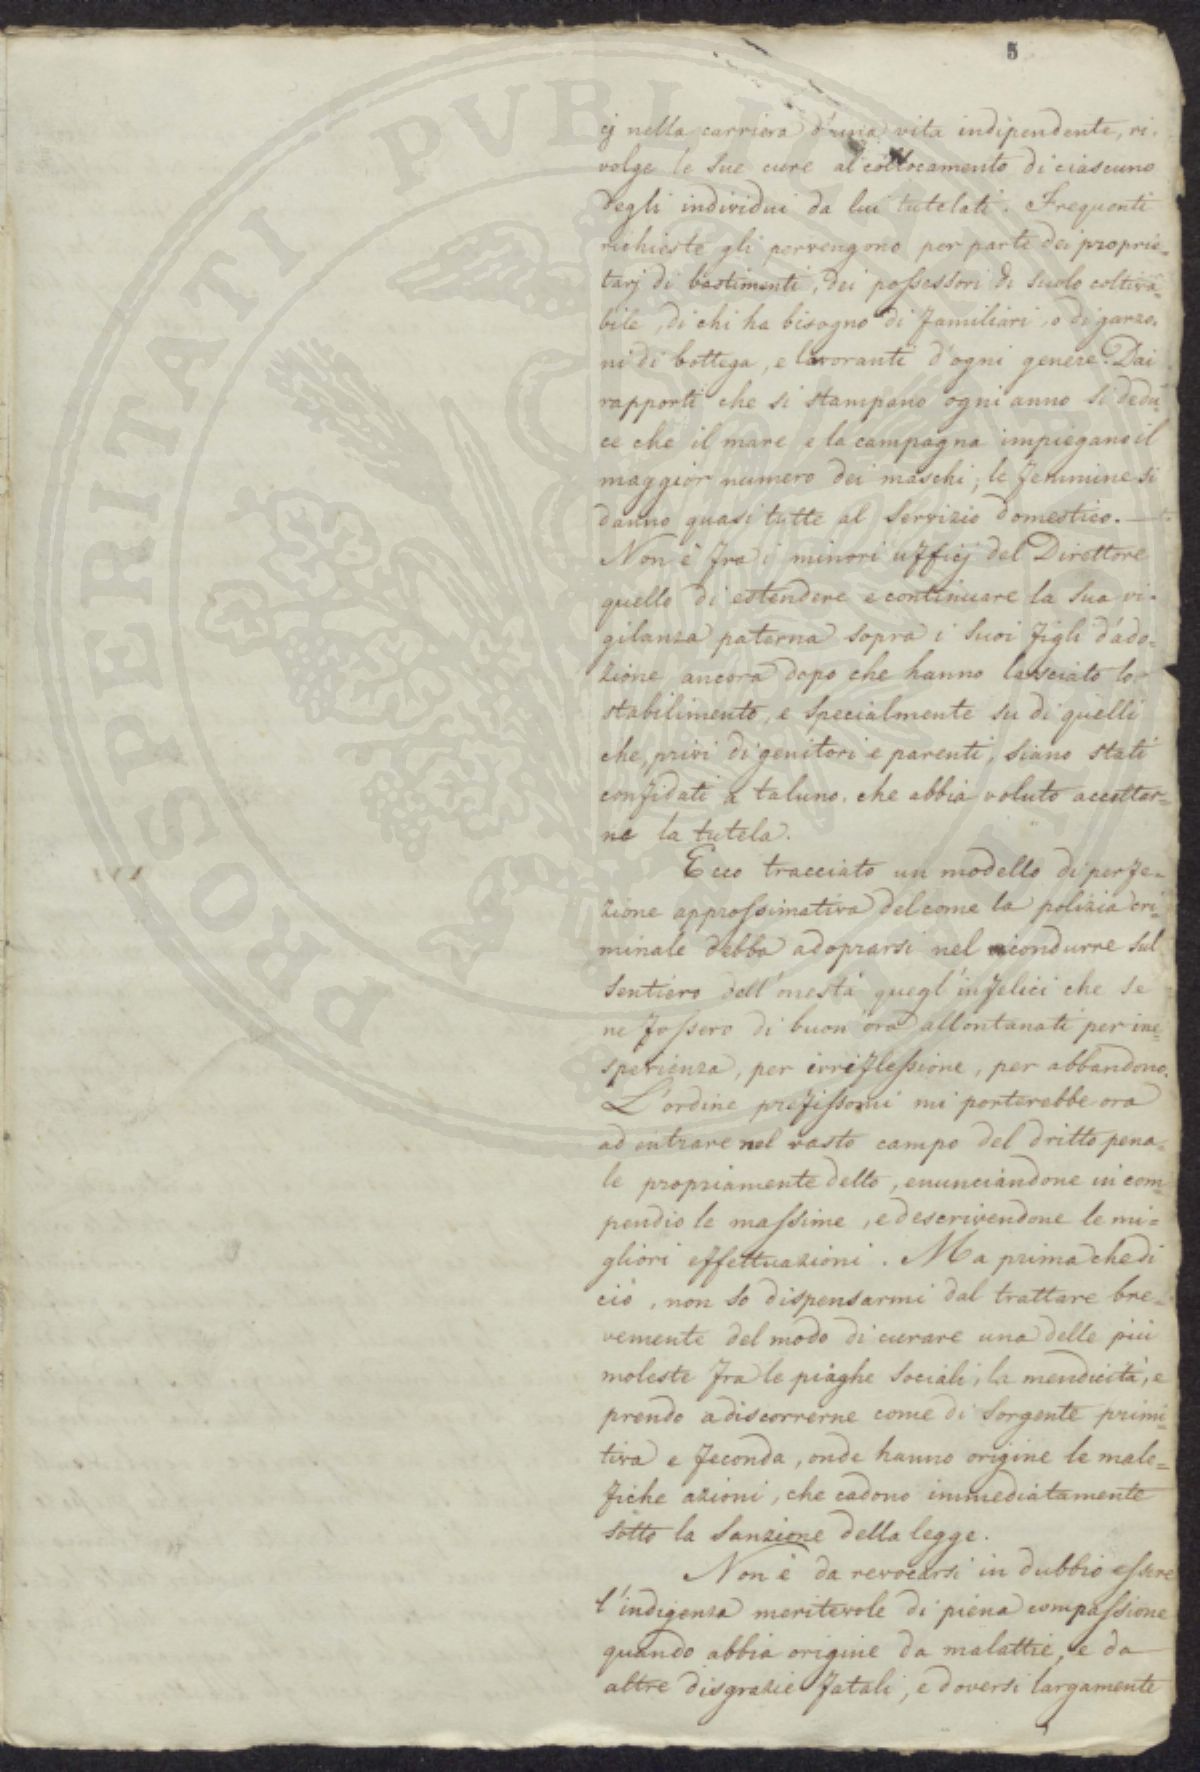 5
cj nella carriera d'una vita indipendente, ri-
volge le sue cure al collocamento di ciascuno
degli individui da lui tutelati. Frequenti
richieste gli pervengono per parte dei proprie-
tarj di bastimenti, dei possessori di suolo coltiva-
bile, di chi ha bisogno di familiari, o di garzo-
ni di bottega, e lavoranti d'ogni genere. Dai
rapporti che si stampano ogni anno si dedu-
ce che il mare e la campagna impiegano il
maggior numero dei maschi; le femmine si
danno quasi tutte al servizio domestico. —
Non è fra i minori ufficj del Direttore
quello di estendere e continuare la sua vi-
gilanza paterna sopra i suoi figli d'ado-
zione ancora dopo che hanno lasciato lo
stabilimento, e specialmente su di quelli
che, privi di genitori e parenti, siano stati
confidati a taluno, che abbia voluto accettar-
ne la tutela.
III
Ecco tracciato un modello di perfe-
zione approssimativa del come la polizia cri-
minale debba adoprarsi nel ricondurre sul
sentiero dell'onestà quegl'infelici che se
ne fossero di buon'ora allontanati per ine-
sperienza, per irriflessione, per abbandono.
L'ordine prefissomi mi porterebbe ora
ad entrare nel vasto campo del dritto pena-
le propriamente detto, enunciandone in com-
pendio le massime, e descrivendone le mi-
gliori effettuazioni. Ma prima che di
ciò, non so dispensarmi dal trattare bre-
vemente del modo di curare una delle più
moleste fra le piaghe sociali, la mendicità, e
prendo a discorrerne come di sorgente primi-
tiva e feconda, onde hanno origine le male-
fiche azioni, che cadono immediatamente
sotto la sanzione della legge.
Non è da revocarsi in dubbio essere
l'indigenza meritevole di piena compassione
quando abbia origine da malattie, e da
altre disgrazie fatali, e doversi largamente
PROSPERITATI PVBLICAE